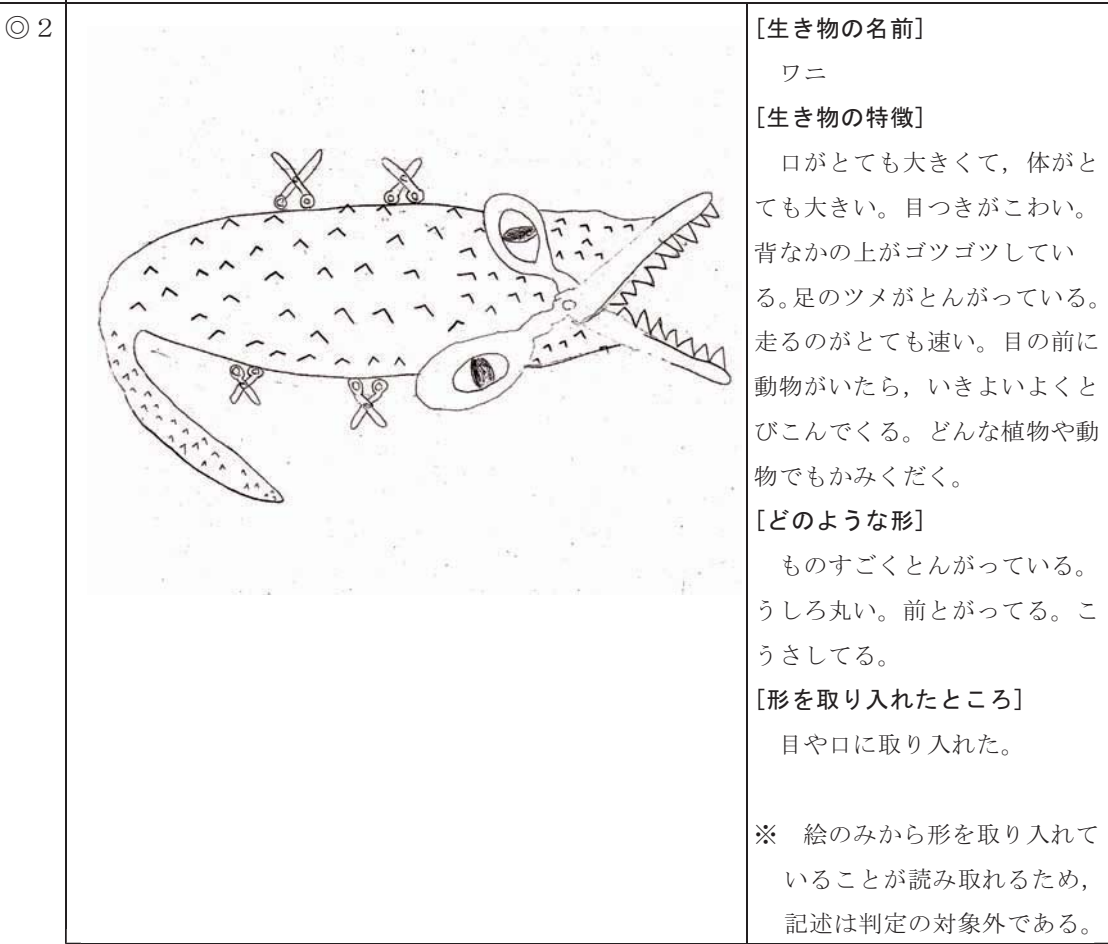 ◎２
[生き物の名前]
ワニ
[生き物の特徴]
口がとても大きくて，体がと
ても大きい。目つきがこわい。
背なかの上がゴツゴツしてい
る。足のツメがとんがっている。
走るのがとても速い。目の前に
動物がいたら，いきよいよくと
びこんでくる。どんな植物や動
物でもかみくだく。
[どのような形]
ものすごくとんがっている。
うしろ丸い。前とがってる。こ
うさしてる。
[形を取り入れたところ]
目や口に取り入れた。
※　絵のみから形を取り入れて
いることが読み取れるため，
記述は判定の対象外である。